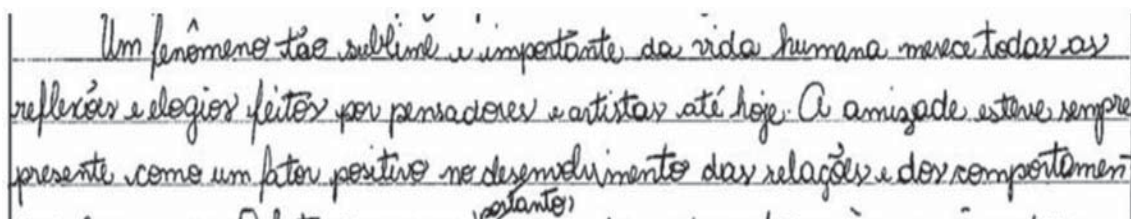 Um fenômeno tão sublime e importante da vida humana merece todas as
reflexões e elogios feitos por pensadores e artistas até hoje. A amizade esteve sempre
presente como um fator positivo no desenvolvimento das relações e dos comportamen
portanto,